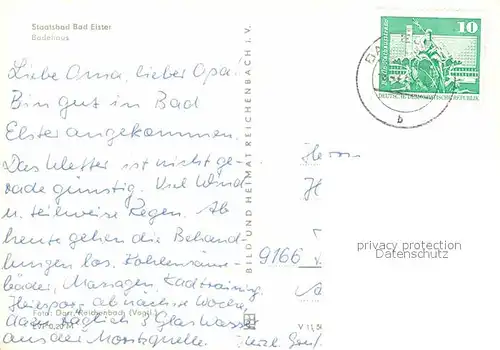 Staatsbad Bad Elster
Badehaus
Liebe Oma, lieber Opa.
Bin gut in Bad
Elster angekommen.
Das Wetter ist nicht ge-
rade günstig. Viel Wind
u. teilweise Regen. Ab
heute gehen die Behand-
lungen los. Kohlensäure-
bäder, Massagen, Radtraining,
ab nächste Woche,
dazu täglich 3 Glas Wasser
aus der Moritzquelle. Viel
Foto: Darr, Reichenbach (Vogtl.)
EVP 0,20 M
BILD UND HEIMAT REICHENBACH I. V.
V 11 50
10
DEUTSCHE DEMOKRATISCHE REPUBLIK
BA
b
Herrn
H
9166
privacy protection
Datenschutz